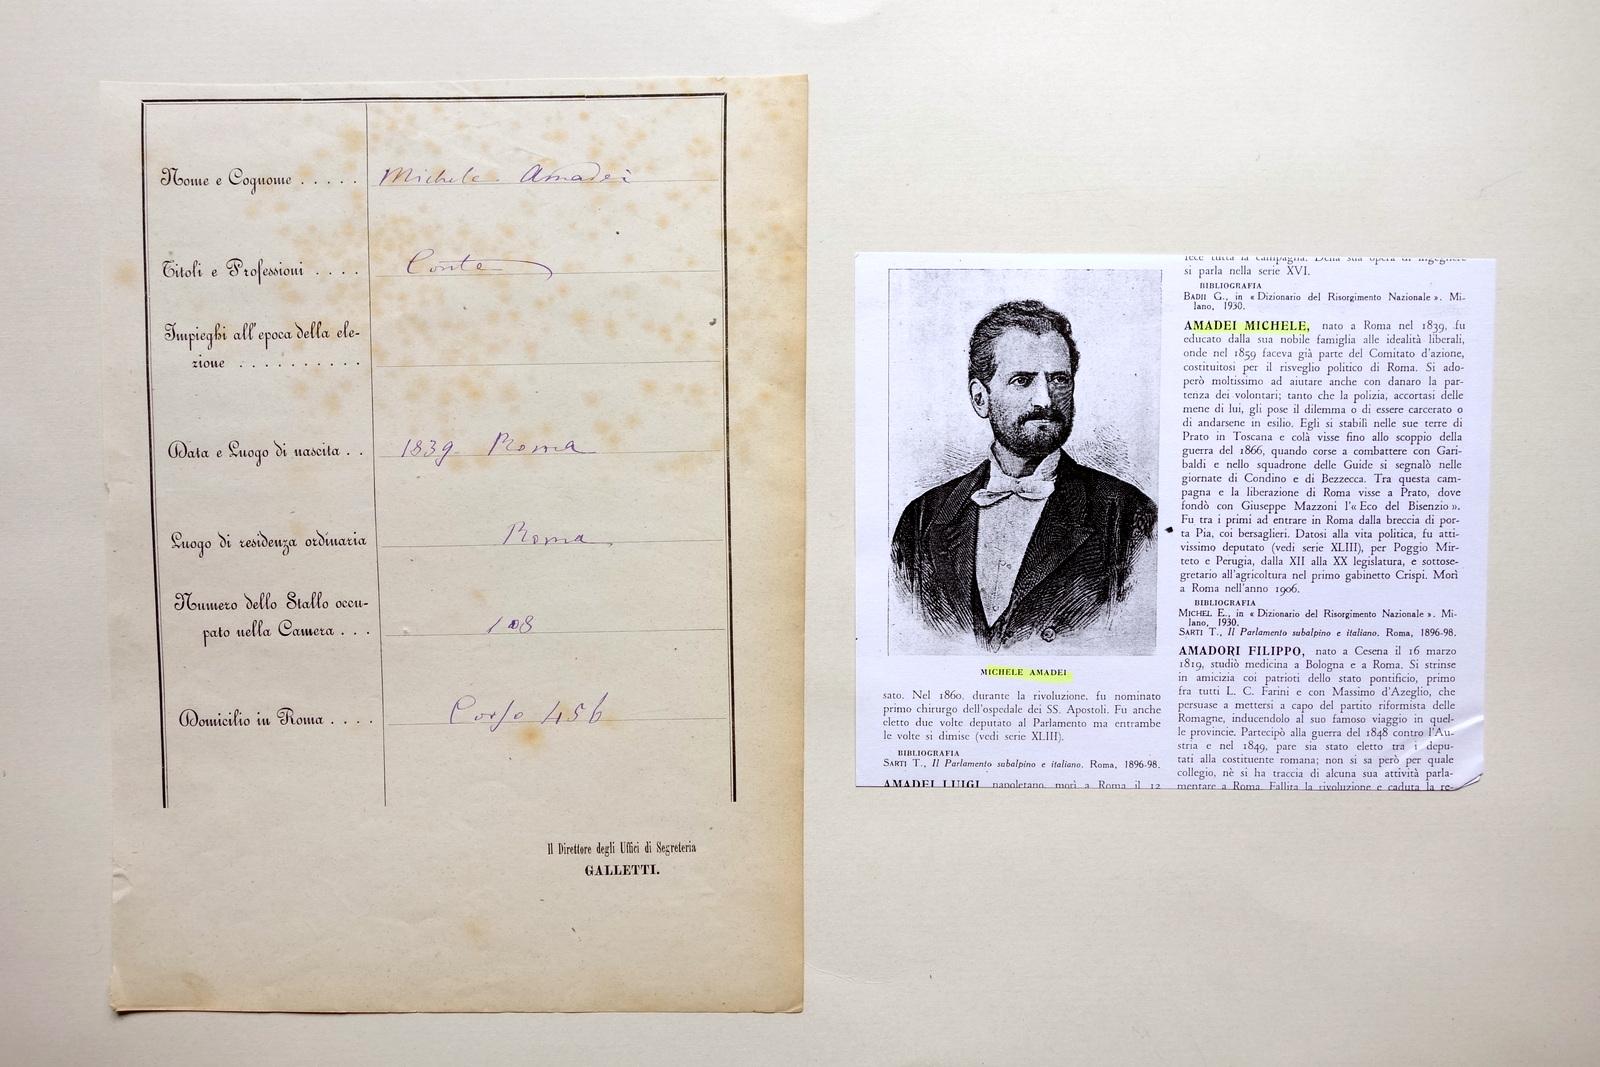 Nome e Cognome . . . . . Michele Amadei
Titoli e Professioni . . . . Conte
Impieghi all'epoca della ele-
zione . . . . . . . . . .
Data e Luogo di nascita . . 1839. Roma
Luogo di residenza ordinaria Roma
Numero dello Stallo occu-
pato nella Camera . . . 108
Domicilio in Roma . . . . Corso 456
Il Direttore degli Uffici di Segreteria
GALLETTI.
MICHELE AMADEI
sato. Nel 1860, durante la rivoluzione, fu nominato
primo chirurgo dell'ospedale dei SS. Apostoli. Fu anche
eletto due volte deputato al Parlamento ma entrambe
le volte si dimise (vedi serie XLIII).
BIBLIOGRAFIA
SARTI T., Il Parlamento subalpino e italiano. Roma, 1896-98.
AMADEI LUIGI, napoletano, morì a Roma il 12
fece tutta la campagna. Della sua opera di ingegnere
si parla nella serie XVI.
BIBLIOGRAFIA
BADII G., in « Dizionario del Risorgimento Nazionale ». Mi-
lano, 1930.
AMADEI MICHELE, nato a Roma nel 1839, fu
educato dalla sua nobile famiglia alle idealità liberali,
onde nel 1859 faceva già parte del Comitato d'azione,
costituitosi per il risveglio politico di Roma. Si ado-
però moltissimo ad aiutare anche con danaro la par-
tenza dei volontari; tanto che la polizia, accortasi delle
mene di lui, gli pose il dilemma o di essere carcerato o
di andarsene in esilio. Egli si stabilì nelle sue terre di
Prato in Toscana e colà visse fino allo scoppio della
guerra del 1866, quando corse a combattere con Gari-
baldi e nello squadrone delle Guide si segnalò nelle
giornate di Condino e di Bezzecca. Tra questa cam-
pagna e la liberazione di Roma visse a Prato, dove
fondò con Giuseppe Mazzoni l'« Eco del Bisenzio ».
Fu tra i primi ad entrare in Roma dalla breccia di por-
ta Pia, coi bersaglieri. Datosi alla vita politica, fu atti-
vissimo deputato (vedi serie XLIII), per Poggio Mir-
teto e Perugia, dalla XII alla XX legislatura, e sottose-
gretario all'agricoltura nel primo gabinetto Crispi. Morì
a Roma nell'anno 1906.
BIBLIOGRAFIA
MICHEL E., in « Dizionario del Risorgimento Nazionale ». Mi-
lano, 1930.
SARTI T., Il Parlamento subalpino e italiano. Roma, 1896-98.
AMADORI FILIPPO, nato a Cesena il 16 marzo
1819, studiò medicina a Bologna e a Roma. Si strinse
in amicizia coi patrioti dello stato pontificio, primo
fra tutti L. C. Farini e con Massimo d'Azeglio, che
persuase a mettersi a capo del partito riformista delle
Romagne, inducendolo al suo famoso viaggio in quel-
le provincie. Partecipò alla guerra del 1848 contro l'Au-
stria e nel 1849, pare sia stato eletto tra i depu-
tati alla costituente romana; non si sa però per quale
collegio, nè si ha traccia di alcuna sua attività parla-
mentare a Roma. Fallita la rivoluzione e caduta la re-